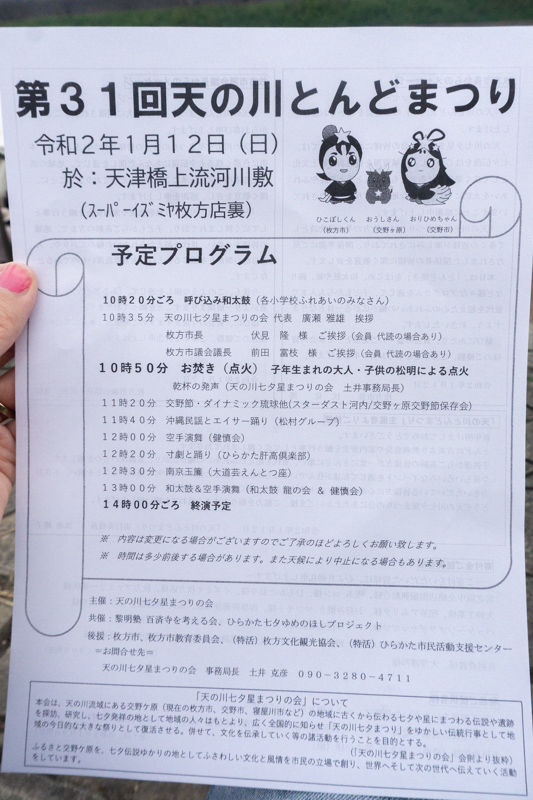 第３１回天の川とんどまつり
令和２年１月１２日（日）
於：天津橋上流河川敷
（ｽｰﾊﾟｰｲｽﾞﾐﾔ枚方店裏）
ひこぼしくん おうしさん おりひめちゃん
（枚方市） （交野ヶ原） （交野市）
予定プログラム
１０時２０分ごろ 呼び込み和太鼓（各小学校ふれあいのみなさん）
１０時３５分 天の川七夕星まつりの会 代表 廣瀬 雅雄 挨拶
枚方市長 伏見 隆 様 ご挨拶（会員 代読の場合あり）
枚方市議会議長 前田 富枝 様 ご挨拶（会員 代読の場合あり）
１０時５０分 お焚き（点火） 子年生まれの大人・子供の松明による点火
乾杯の発声（天の川七夕星まつりの会 土井事務局長）
１１時２０分 交野節・ダイナミック琉球他(スターダスト河内/交野ヶ原交野節保存会)
１１時４０分 沖縄民謡とエイサー踊り（松村グループ）
１２時００分 空手演舞（健慎会）
１２時２０分 寸劇と踊り（ひらかた肝高倶楽部）
１２時３０分 南京玉簾（大道芸えんとつ座）
１３時００分 和太鼓＆空手演舞（和太鼓 龍の会 ＆ 健慎会）
１４時００分ごろ 終演予定
※ 内容は変更になる場合がございますのでご了承のほどよろしくお願い致します。
※ 時間は多少前後する場合があります。また天候により中止になる場合もあります。
主催：天の川七夕星まつりの会
共催：黎明塾 百済寺を考える会、ひらかた七夕ゆめのほしプロジェクト
後援：枚方市、枚方市教育委員会、（特活）枚方文化観光協会、（特活）ひらかた市民活動支援センター
＝お問合せ先＝
天の川七夕星まつりの会 事務局長 土井 克彦 ０９０－３２８０－４７１１
「天の川七夕星まつりの会」について
本会は、天の川流域にある交野ケ原（現在の枚方市、交野市、寝屋川市など）の地域に古くから伝わる七夕や星にまつわる伝説や遺跡
を探訪、研究し、七夕発祥の地として地域の人々はもとより、広く全国的に知らせ「天の川七夕まつり」をゆかしい伝統行事として地
域の今日的な大きな祭りとして復活させる。併せて、文化を伝承していく等の諸活動を行うことを目的とする。
（「天の川七夕星まつりの会」会則より抜粋）
ふるさと交野ケ原を、七夕伝説ゆかりの地としてふさわしい文化と風情を市民の立場で創り、世界へそして次の世代へ伝えていく活動
をしています。